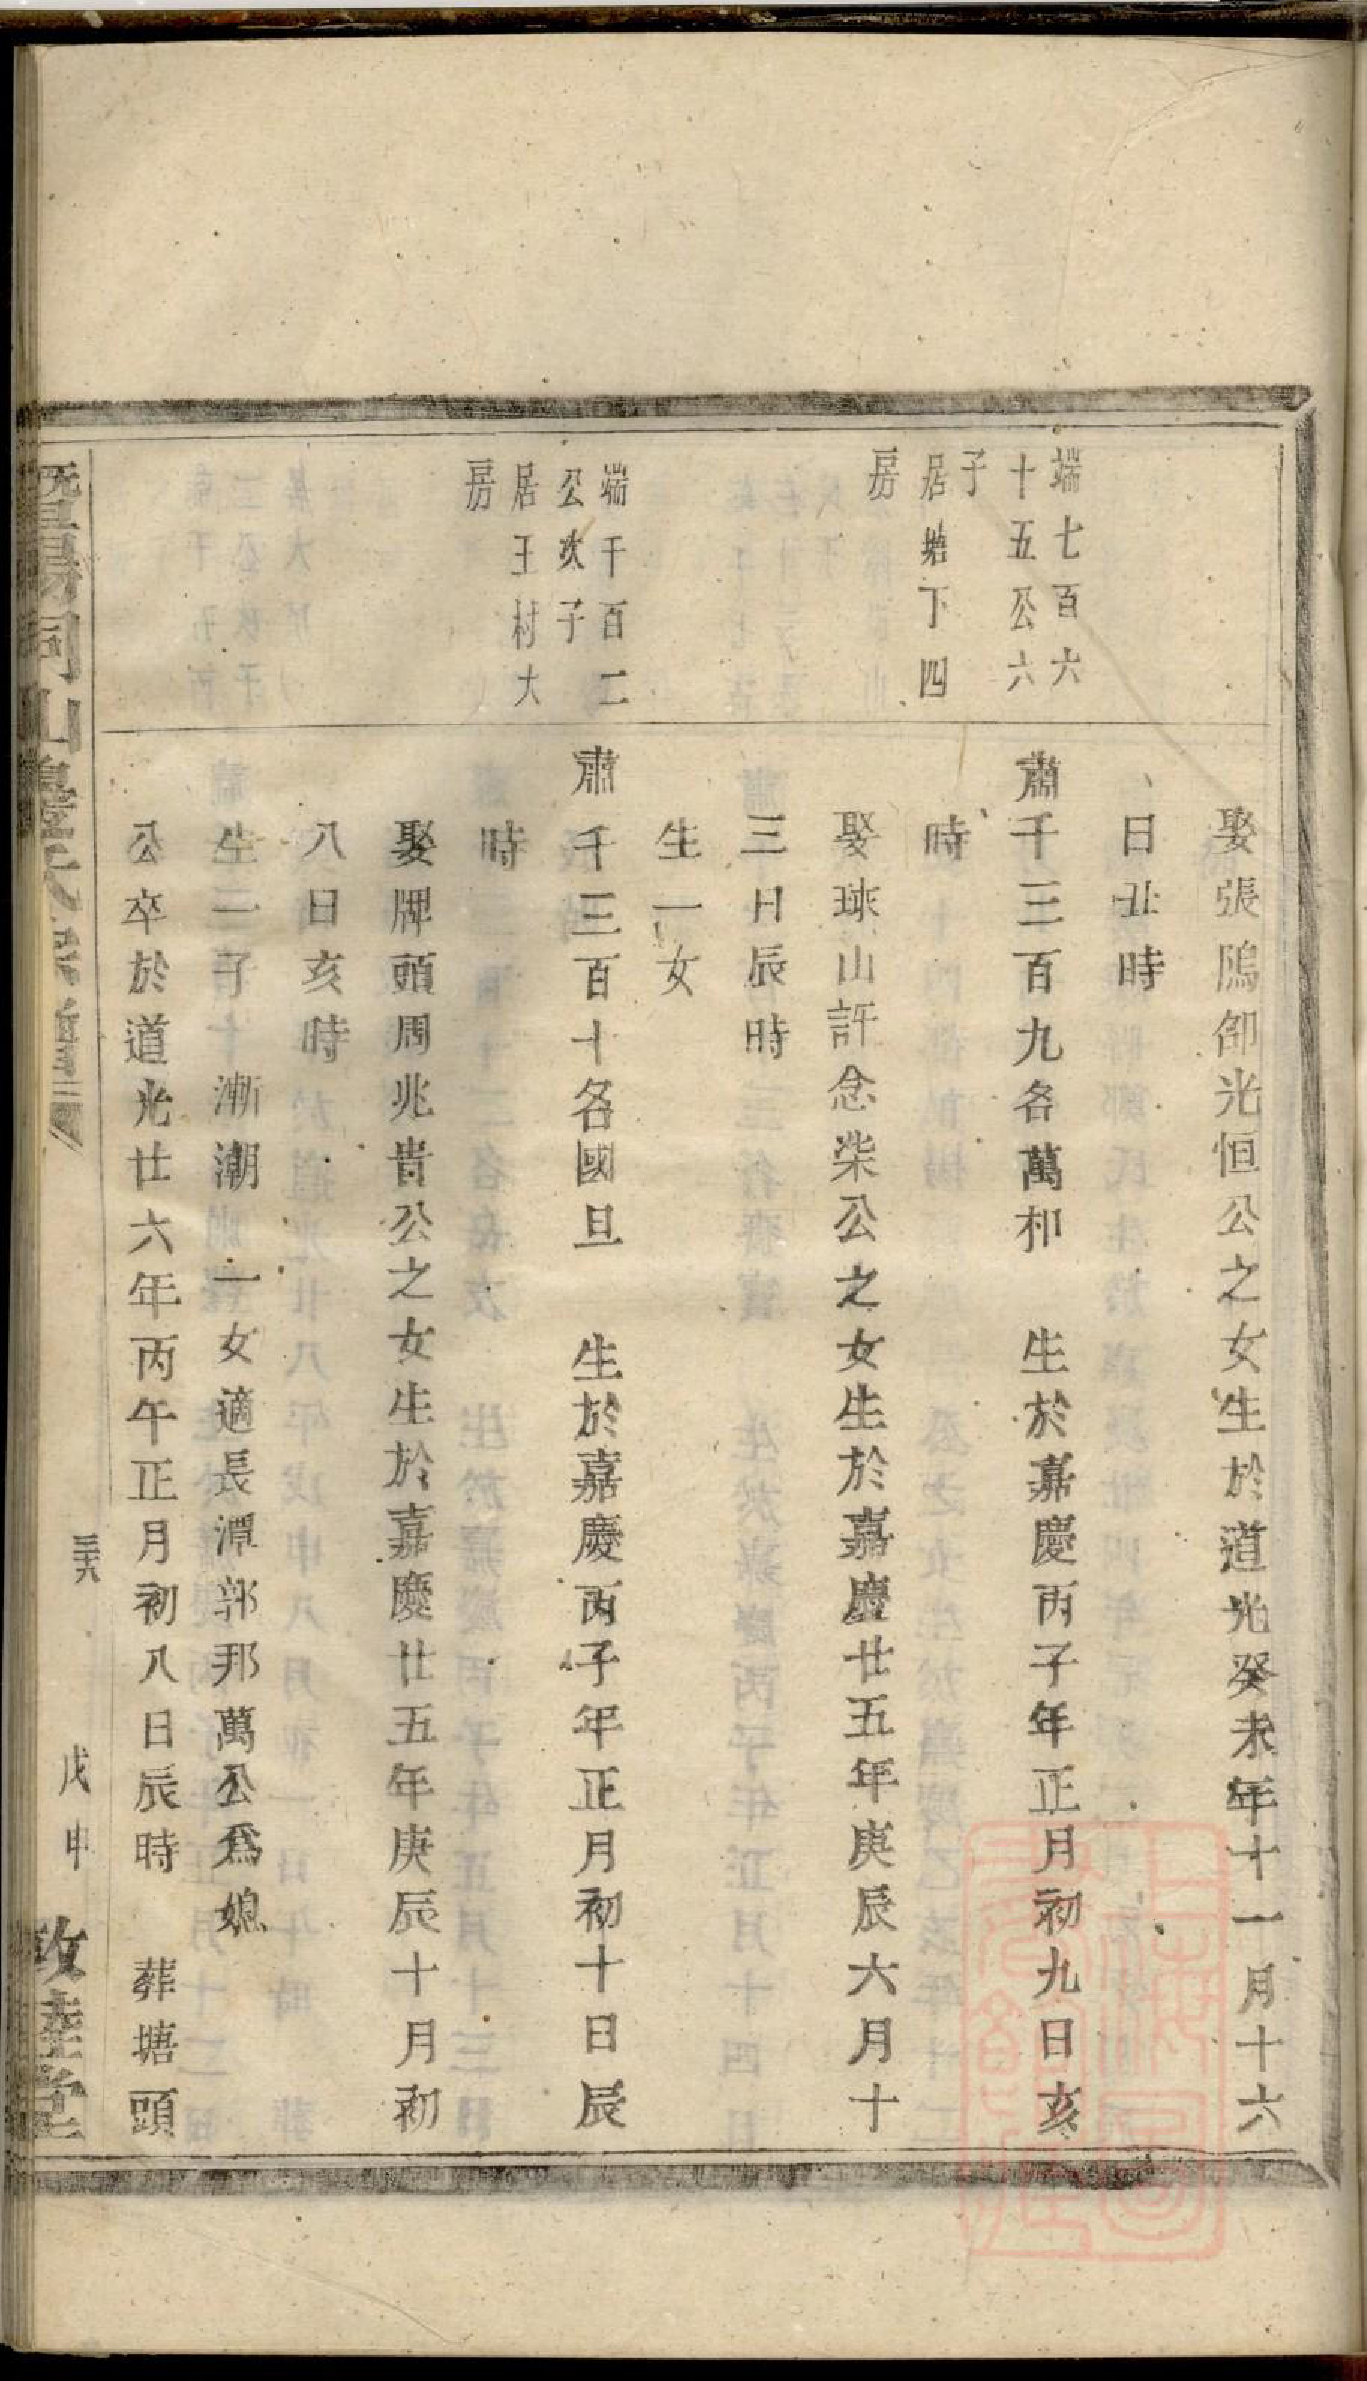 娶張隖郃光恒公之女生於道光癸未年十一月十六
日丑時
端七百六
十五公六
子
居塘下四
房
肅千三百九名萬和　生於嘉慶丙子年正月初九日亥
時
娶琜山許念柴公之女生於嘉慶廿五年庚辰六月十
三日辰時
生一女
端千百二
公次子
居王村大
房
肅千三百十名國旦　生於嘉慶丙子年正月初十日辰
時
娶牌頭周兆貴公之女生於嘉慶廿五年庚辰十月初
八日亥時
生二子　漸潮　一女適長潭郭邦萬公為媳
公卒於道光廿六年丙午正月初八日辰時　葬塘頭
暨陽同山邊氏宗譜
三十八
戊申
敦睦堂
上海圖書館藏